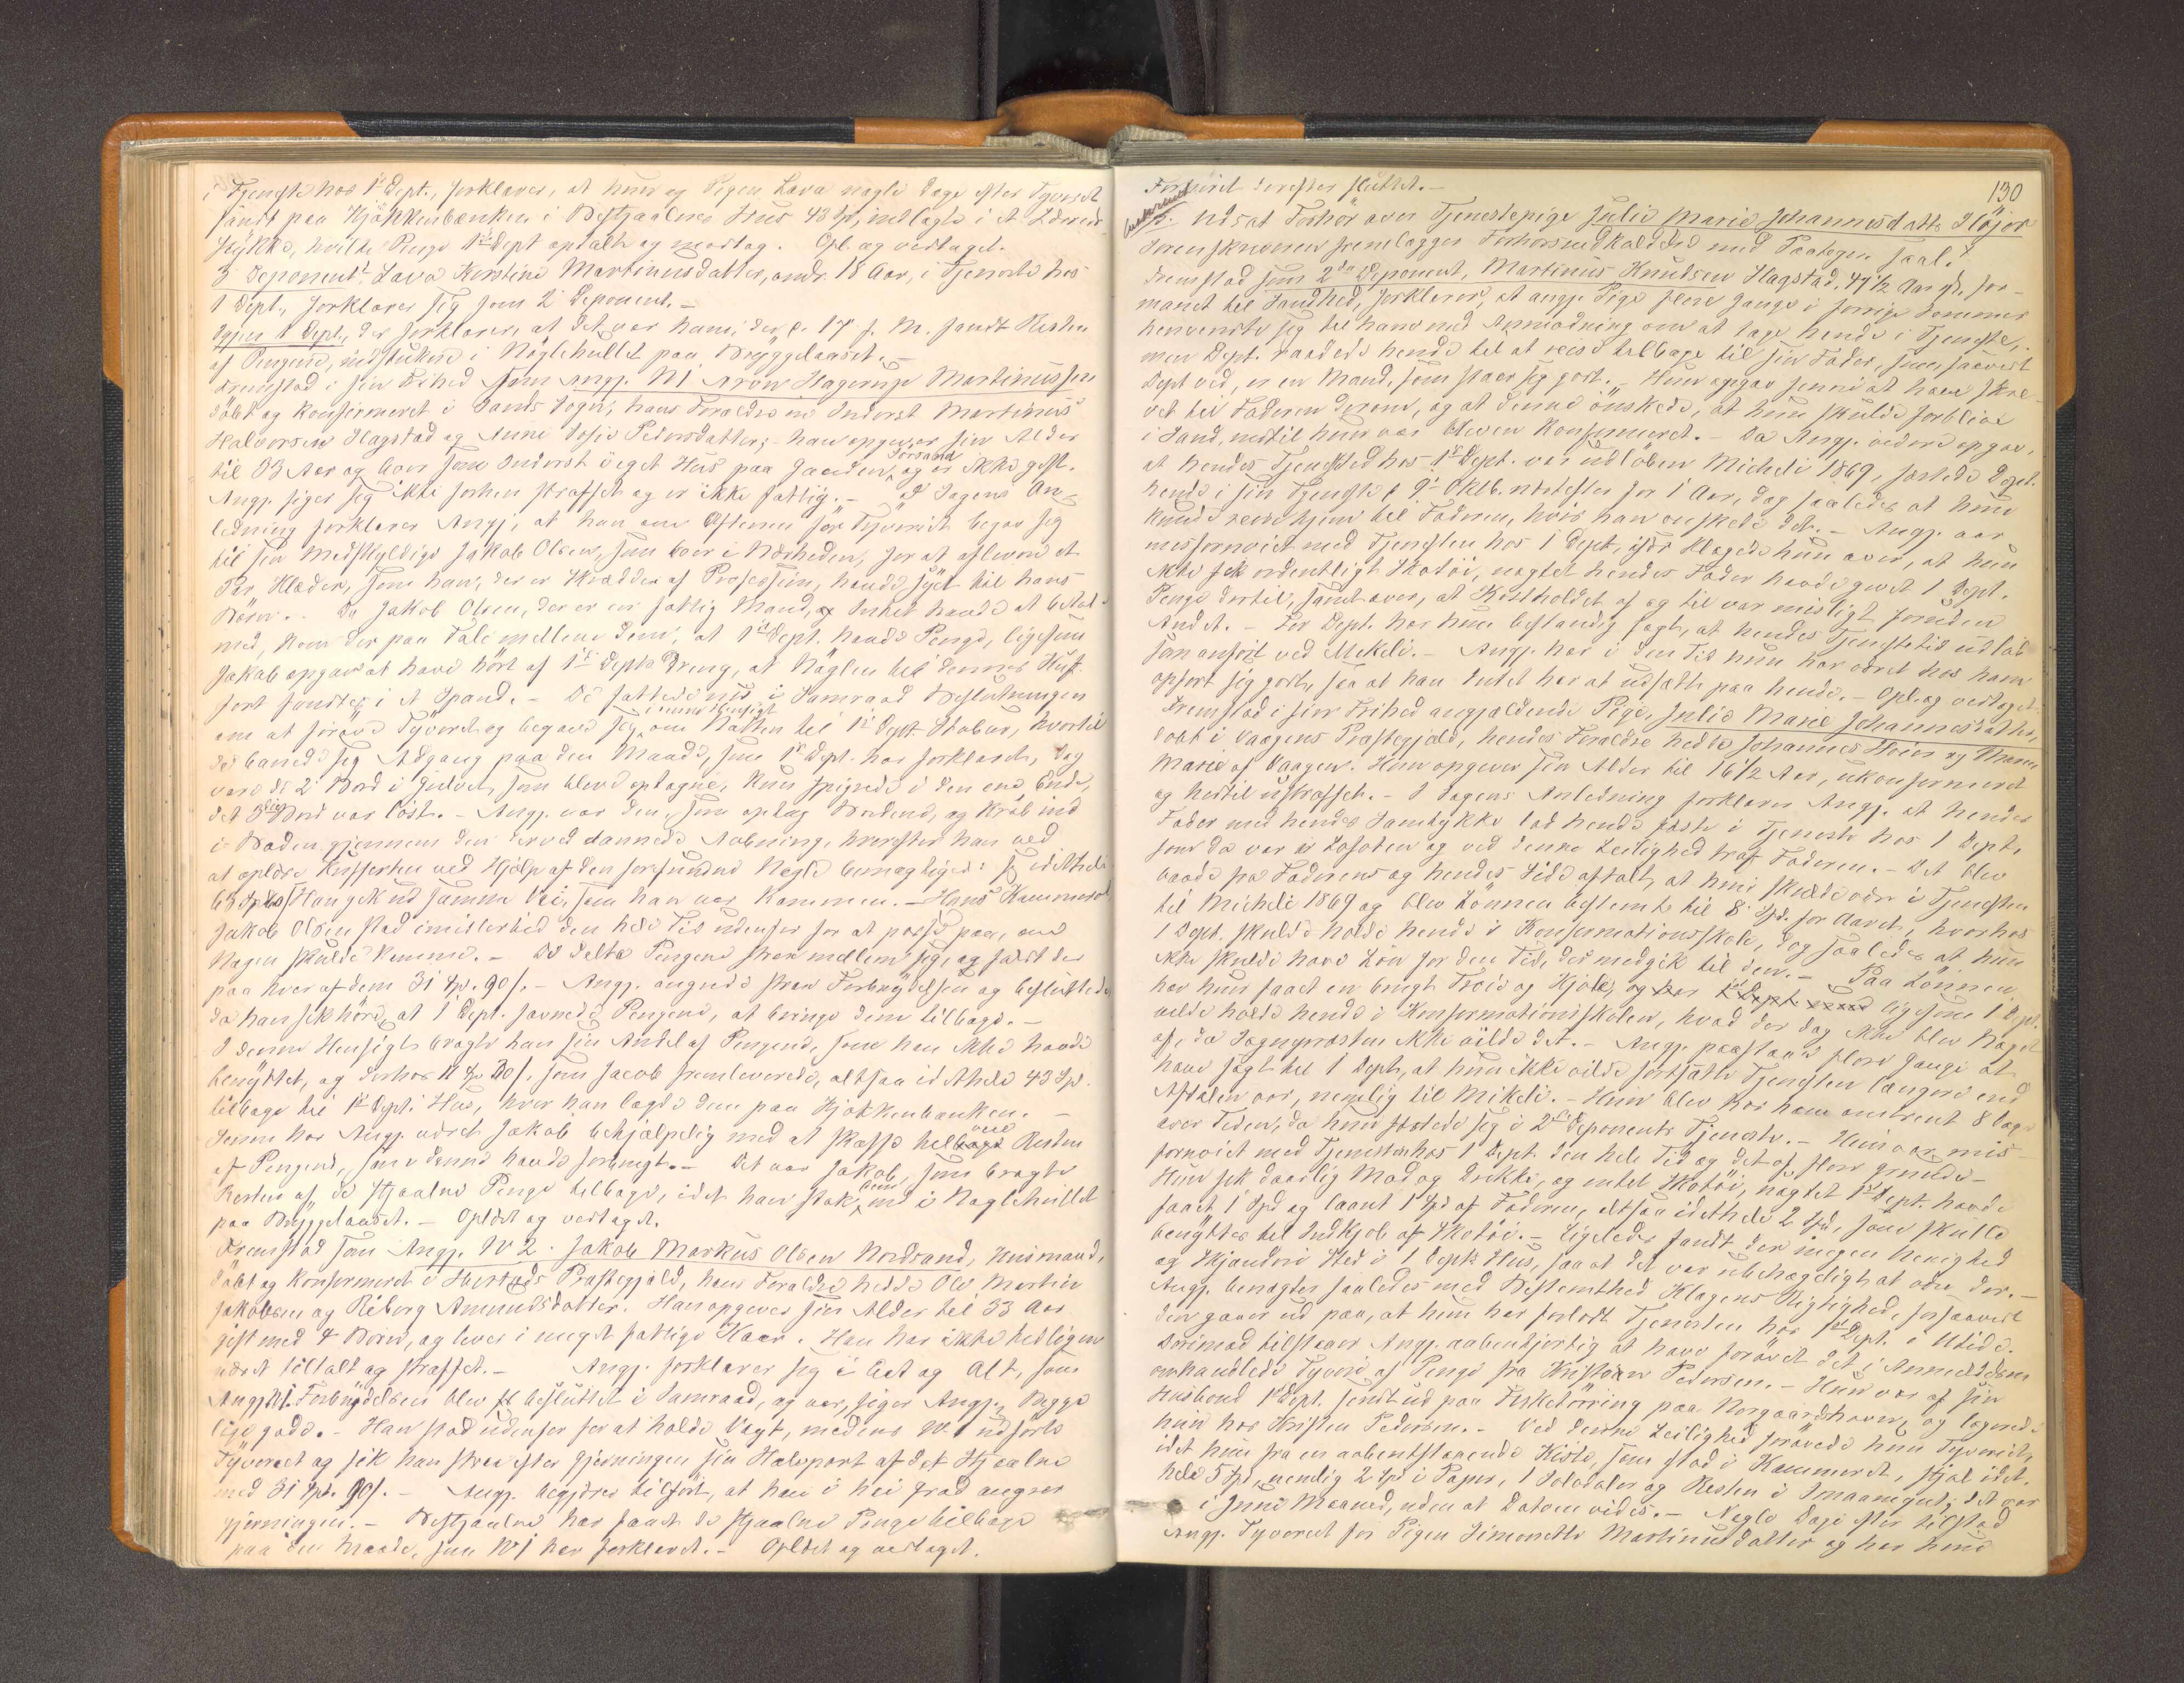 i Tjeneste hos 1ste Dept., forklarer, at hun og Pigen Lava nogle Dage efter Tyveriet
fandt paa Kjøkkenbænken i Bestjaalnes Hus 43 Spd, indlagte i et Lærreds
stykke, hvilke Penge 1ste Dept optalte og modtog. Opl. og vedtaget.
3 Deponent, Lava Kerstine Martinusdatter, andr. 18 Aar, i Tjeneste hos
1 Dept., forklarer sig som 2 Deponent. –
Igjen 1 Dept., der forklarer, at det var ham, der d. 17 f. M. fandt Resten
af Pengene, indstukne i Nøglehullet paa Bryggelaaset. –
Fremstod i sin Frihed som Angj. N1 Aron Hagerup Martinussen
døbt og konfirmeret i Sands Sogn, hans Forældre ere Inderst Martinus
Halvorsen Hagstad og Anne Sofie Pedersdatter; – han opgiver sin Alder
til 23 Aar og boer som Inderst i eget Hus paa Gaarden Forsand, og er ikke gift.
Angj. siger sig ikke forhen straffet og er ikke fattig. – I Sagens An-
ledning forklarer Angj., at han om Aftenen før Tyveriet begav sig
til sin Medskyldige Jakob Olsen, som boer i Nærheden, for at aflevere et
Par Klæder, som han, der er Skrædder af Profession, havde syet til hans
Børn. – Da Jakob Olsen, der er en fattig Mand, Intet havde at betale
med, kom der paa Tale mellem dem, at 1ste Dept. havde Penge, ligesom
Jakob opgav at have hørt af 1ste Depts Dreng, at Nøglen til dennes Kuf-
fert fandtes i et Spand. – De fattede nu i Samraad Beslutningen
om at forøve Tyveriet, og begave sig i denne Hensigt om Natten til 1ste Dept Stabur, hvortil
de banede sig Adgang paa den Maade, som 1ste Dept. har forklaret, dog
vare de 2 Bord i Gulvet, som bleve optagne, kun spigrede i den ene Ende,
det 3die Bord var løst. – Angj. var den, som optog Bordene, og krøb ind
i Boden gjennem den derved dannede Aabning, hvorefter han ved
at oplukke Kufferten ved Hjælp af den forefundne Nøgle bemægtigede sig idethele
63 Spd. Han gik ud samme Vei, som han var kommen. – Hans Kammerat
Jakob Olsen stod imidlertid den hele Tid udenfor for at passe paa, om
Nogen skulde komme. – De delte Pengene strax mellem sig, og faldt der
paa hver af dem 31 Spd. 90 s. – Angj. angrede strax Forbrydelsen og besluttede,
da han fik høre, at 1 Dept. savnede Pengene, at bringe dem tilbage. –
I denne Hensigt bragte han sin Andel af Pengene, som han ikke havde
benyttet, og derhos 11 Spd 30 s., som Jacob fremleverede, altsaa idethele 43 Spd.
tilbage til 1ste Depts Hus, hvor han lagde dem paa Kjøkkenbænken. –
Senere har Angj. været Jakob behjælpelig med at skaffe tilveie Resten
af Pengene, som denne havde forbrugt. – Det var Jakob, som bragte
Resten af de stjaalne Penge tilbage, idet han stak dem ind i Nøglehullet
paa Bryggelaaset. – Oplæst og vedtaget.
Fremstod som Angj. N2. Jakob Markus Olsen Nordsand, Husmand,
døbt og konfirmeret i Harstads Præstegjæld, hans Forældre hedde Ole Martin
Jakobsen og Riborg Amundsdatter. Han opgiver sin Alder til 33 Aar
gift med 4 Børn, og lever i meget fattige Kaar. Han har ikke tidligere
været tiltalt og straffet. – Angj. forklarer sig i Eet og Alt, som
Angj N1. Forbrydelsen blev besluttet i Samraad, og var, siger Angj., Begge
lige gode. – Han stod udenfor for at holde Vagt, medens N 1 udførte
Tyveriet og fik han strax efter Gjerningen sin Halvpart af det Stjaalne
med 31 Spd. 90 s. – Angj. begjærer tilført, at han i høi Grad angrer
Gjerningen. – Bestjaalne har faaet de stjaalne Penge tilbage
paa den Maade, som N1 har forklaret. – Oplæst og vedtaget.
130
Forhøret derefter sluttet. –
Udsat Forhør over Tjenestepige Julie Marie Johannesdatter Fløjor
Sorenskriveren fremlægger Forhørsudskaldelse med Paategn. saal.
Fremstod som 2den Deponent, Martinus Knudsen Hagstad, 47 1/2 Aar gl., for-
manet til Sandhed, forklarer, at angj. Pige flere Gange i forrige Sommer
henvendte sig til ham med Anmodning om at tage hende i Tjeneste,
men Dept. raadede hende til at reise tilbage til sin Fader, som, saavidt
Dept ved, er en Mand, som staar sig godt. – Hun opgav senere at have skre-
vet til Faderen derom, og at denne ønskede, at hun skulde forblive
i Sand, indtil hun var bleven konfirmeret. – Da Angj. videre opgav,
at hendes Tjenestetid hos 1ste Dept. var udløben Micheli 1869, fæstede Dept.
hende i sin Tjeneste d. 9de Oktb. næstefter for 1 Aar, dog saaledes at hun
kunde reise hjem til Faderen, hvis han ønskede det. – Angj. var
misfornøiet med Tjenesten hos 1 Dept, idet klagede hun over, at hun
ikke fik ordentligt Skotøi, uagtet hendes Fader havde givet 1 Dept.
Penge dertil, samt over, at Kostholdet af og til var misligt foruden
Andet. – For Dept. har hun bestandig sagt, at hendes Tjenestetid udløb
som anført ved Mikeli. – Angj. har i den Tid hun har været hos ham
opført sig godt, saa at han Intet har at udsætte paa hende. – Opl. og vedtaget.
Fremstod i sin Frihed angjældende Pige, Julie Marie Johannesdatter,
døbt i Vaagens Præstegjæld, hendes Forældre hedde Johannes Hoier og Maren
Marie af Vaagen. Hun opgiver sin Alder til 16 1/2 Aar, ukonfirmeret
og hidtil ustraffet. – I Sagens Anledning forklarer Angj. at hendes
Fader med hendes Samtykke lod hende fæste i Tjeneste hos 1 Dept.,
som da var i Lofoten og ved denne Leilighed traf Faderen. – Det blev
baade fra Faderens og hendes Side aftalt, at hun skulde være i Tjenesten
til Micheli 1869 og blev Lønnen bestemt til 8 Spd. for Aaret, hvorhos
1 Dept. skulde holde hende i Konfirmationsskole, dog saaledes at hun
ikke skulde have Løn for den Tid, der medgik til den. – Paa Lønnen
har hun faaet en brugt Trøie og Kjole, ligesom 1 Dept.
vilde holde hende i Konfirmationsskolen, hvad der dog ikke blev Noget
af, da Sognepræsten ikke vilde det. – Angj. paastaar flere Gange at
have sagt til 1 Dept, at hun ikke vilde fortsætte Tjenesten længere end
Aftalen var, nemlig til Mikeli. – Hun blev hos ham omtrent 8 Dage
over Tiden, da hun fæstede sig i 2den Deponents Tjeneste. – Hun var mis-
fornøiet med Tjenesten hos 1 Dept. den hele Tid og det af flere Grunde –
Hun fik daarlig Mad og Drikke, og intet Skotøi, uagtet 1ste Dept. havde
faaet 1 Spd og laant 1 Spd af Faderen, altsaa idethele 2 Spd., som skulle
benyttes til Indkjøb af Skotøi. – Ligeledes fandt der megen Uenighed
og Skjænderi Sted i 1 Depts Hus, saa at det var ubehageligt at være der. –
Angj. benægter saaledes med Bestemthed Klagens Rigtighed, forsaavidt
den gaaer ud paa, at hun har forladt Tjenesten hos 1ste Dept. i Utide.
Derimod tilstaaer Angj. aabenhjertig at have forøvet det i Anmeldelsen
omhandlede Tyveri af Penge fra Kristen Pedersen. – Hun var af sin
Husbond 1ste Dept. sendt ud paa Fisketørring paa Norgaardshavn, og logerede
hun hos Kristen Pedersen. – Ved denne Leilighed forøvede hun Tyveriet,
idet hun fra en aabentstaaende Kiste, som stod i Kammeret, stjal idet-
hele 5 Spd, nemlig 2 Spd i Papir, 1 Sølvdaler og Resten i Smaamynt; det var
i Juni Maaned, uden at Datoen vides. – Nogle Dage efter tilstod
Angj. Tyveriet for Pigen Simonette Martinusdatter og har hende